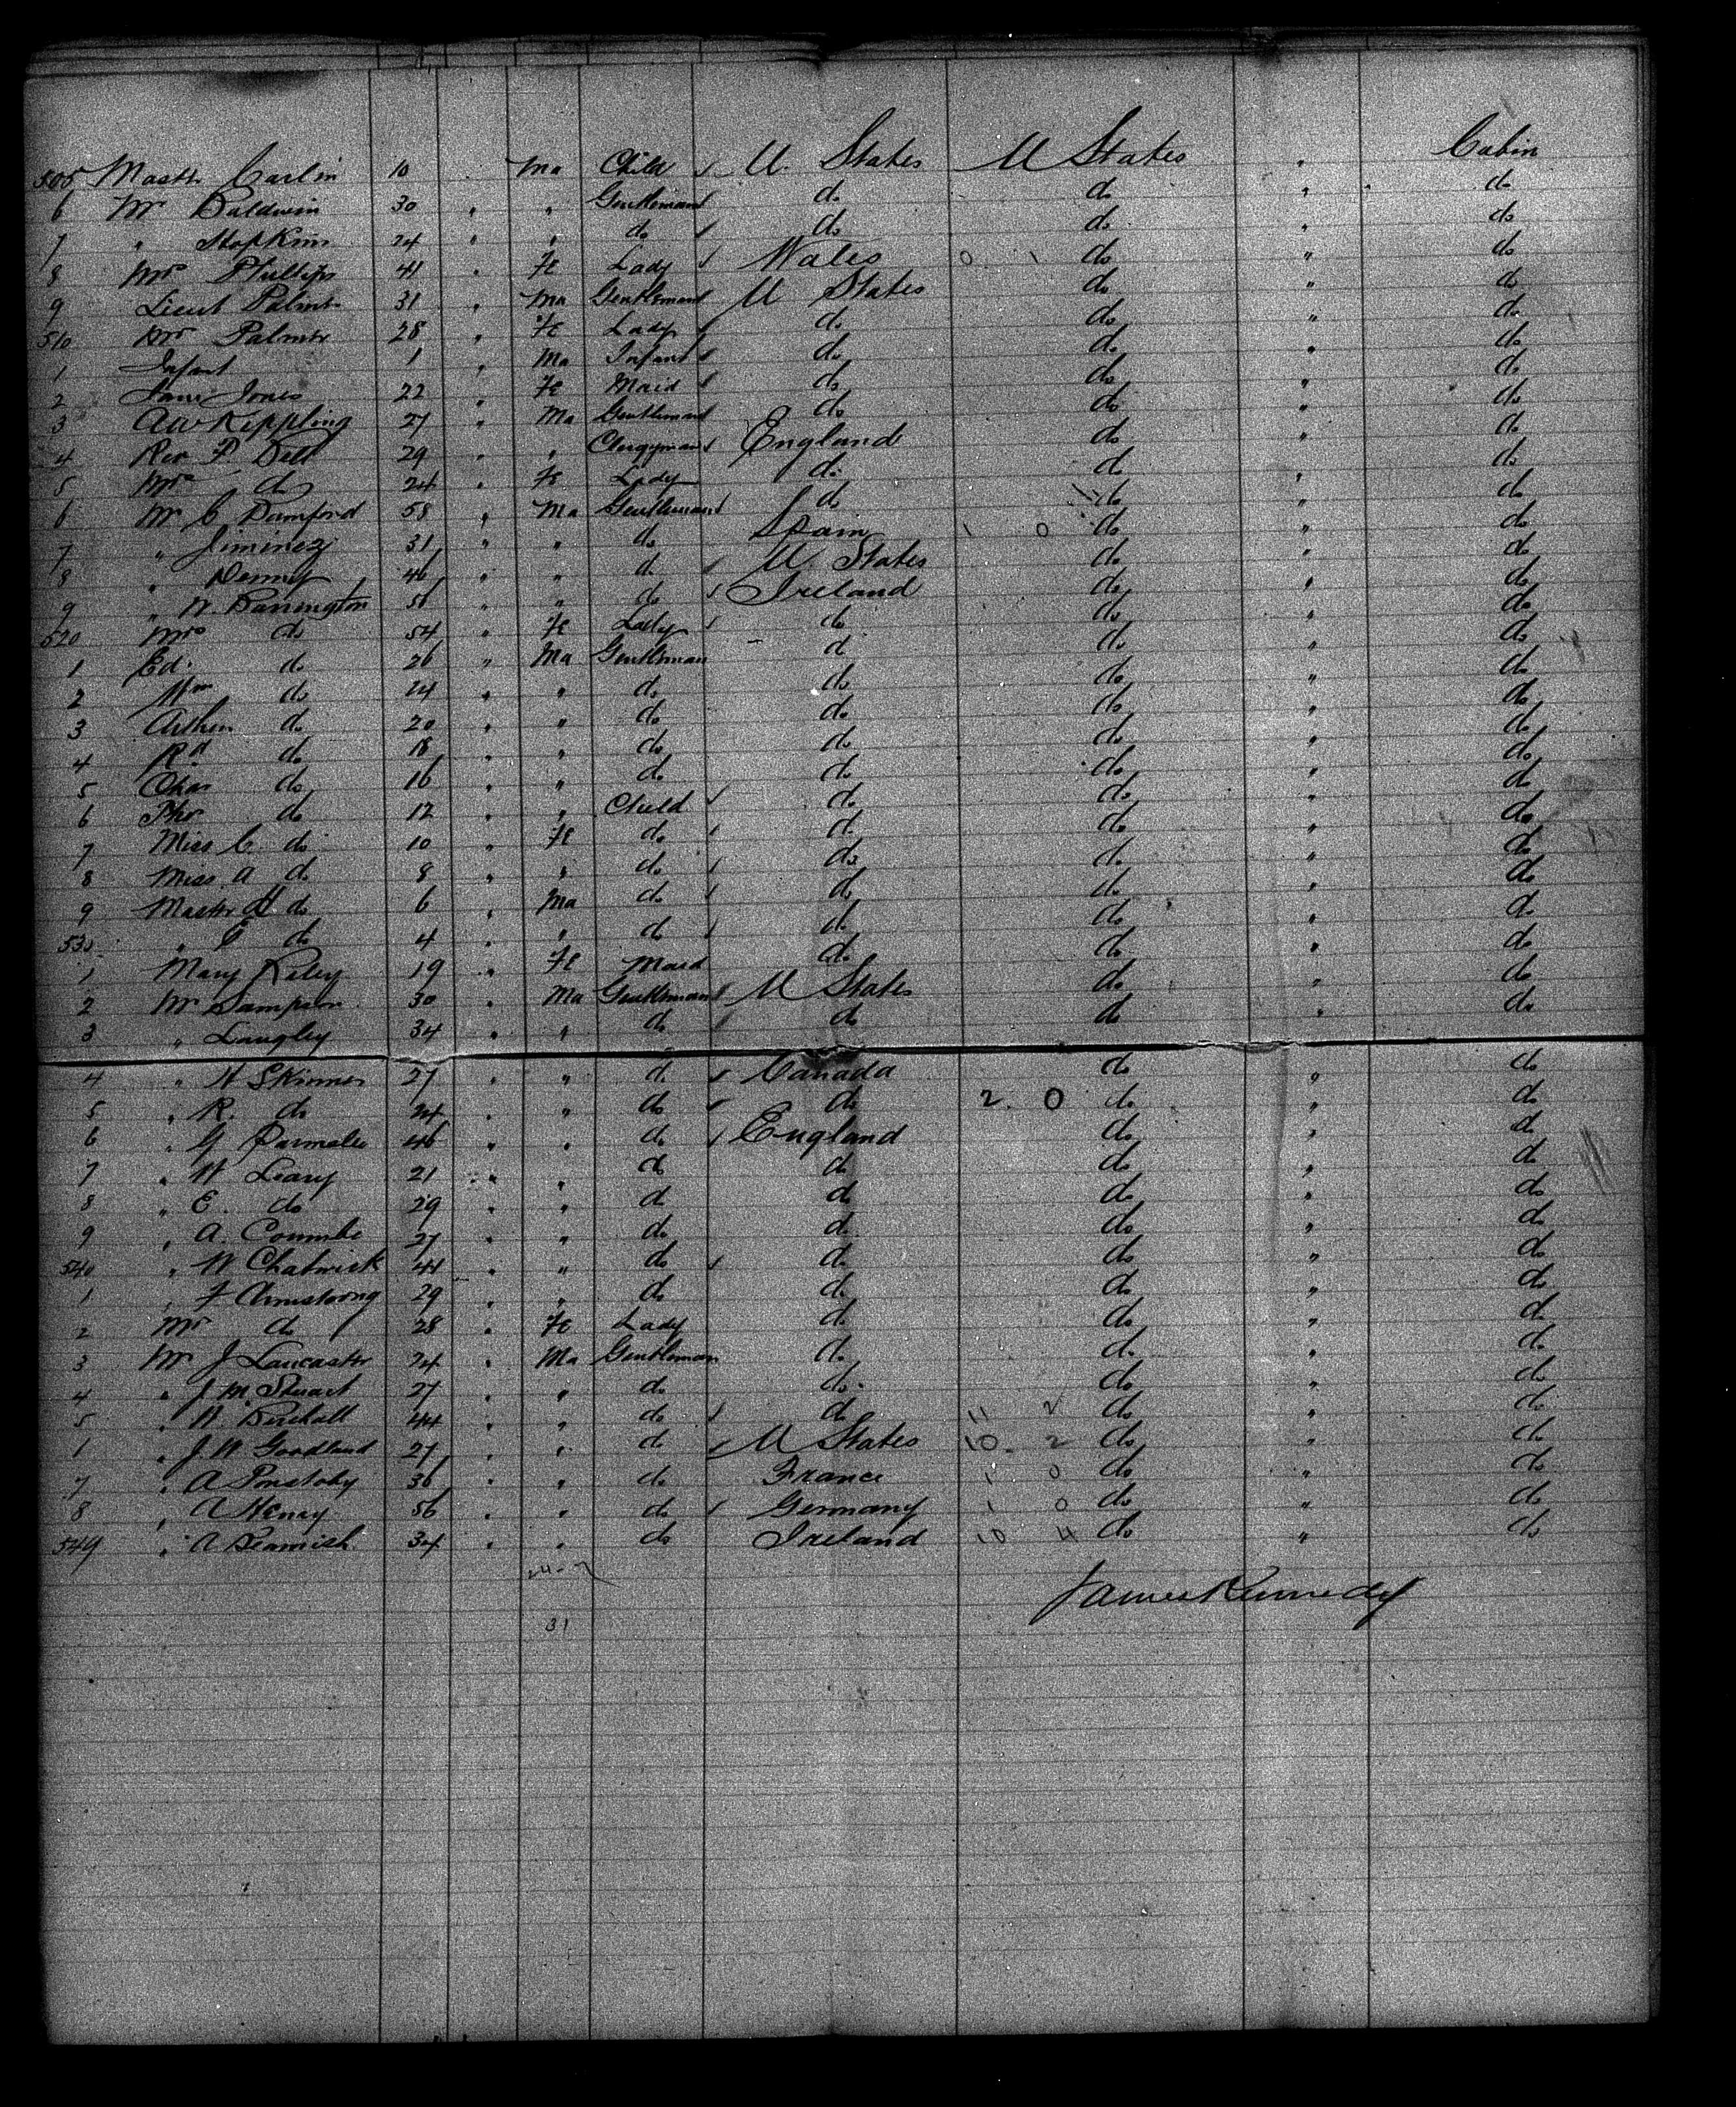 505 Mastr Carlin 10 " Ma Child U. States U States " Cabin
6 Mr Baldwin 30 " " Gentleman do do " do
7 " Hopkins 24 " " do do do " do
8 Mrs Phillips 41 " Fe Lady Wales 0 1 do " do
9 Lieut Palmer 31 " Ma Gentleman U States do " do
510 Mrs Palmer 28 " Fe Lady do do " do
1 Infant 1 " Ma Infant do do " do
2 Jane Jones 22 " Fe Maid do do " do
3 AW Kippling 27 " Ma Gentleman do do " do
4 Rev F. 29 " " Clergyman England do " do
5 Mrs do 24 " Fe Lady do do " do
6 Mr C Bamford 58 " Ma Gentleman do do " do
7 " Jiminez 31 " " do Spain 1 0 do " do
8 " Denny 46 " " do U. States do " do
9 " W. Barrington 56 " " do Ireland do " do
520 Mrs do 54 " Fe Lady do do " do
1 Ed. do 26 " Ma Gentleman do do " do
2 Wm do 24 " " do do do " do
3 Arthur do 20 " " do do do " do
4 Rd do 18 " " do do do " do
5 Chas do 16 " " do do do " do
6 Thos do 12 " " Child do do " do
7 Miss C do 10 " Fe do do do " do
8 Miss A do 8 " " do do do " do
9 Mastr H do 6 " Ma do do do " do
530 " E do 4 " " do do do " do
1 Mary Riley 19 " Fe Maid do do " do
2 Mr Sampson 30 " Ma Gentleman U States do " do
3 " Langley 34 " " do do do " do
4 " H Skinner 27 " " do Canada do " do
5 " R. do 24 " " do do 2 0 do " do
6 " G Parmalee 46 " " do England do " do
7 " W Leary 21 " " do do do " do
8 " E. do 29 " " do do do " do
9 " A. Coombe 27 " " do do do " do
540 " W Chatwick 44 " " do do do " do
1 " F Armstrong 29 " " do do do " do
2 Mrs do 28 " Fe Lady do do " do
3 Mr J Lancaster 24 " Ma Gentleman do do " do
4 " J. M. Stuart 27 " " do do do " do
5 " W. Birchall 44 " " do do 11 2 do " do
1 " J. W Goodland 27 " " do U States 10 2 do " do
7 " A 36 " " do France 1 0 do " do
8 " A Henry 56 " " do Germany 1 0 do " do
549 " A Beamish 34 " " do Ireland 10 4 do " do
24-7
James Kennedy
31